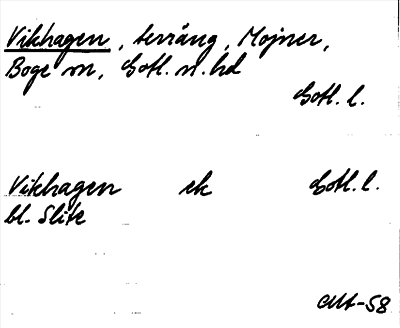 Vikhagen, terräng, Mojner,
Boge sn, Gotl. n. hd
Gotl. l.
Vikhagen ek Gotl. l.
bl. Slite
-58